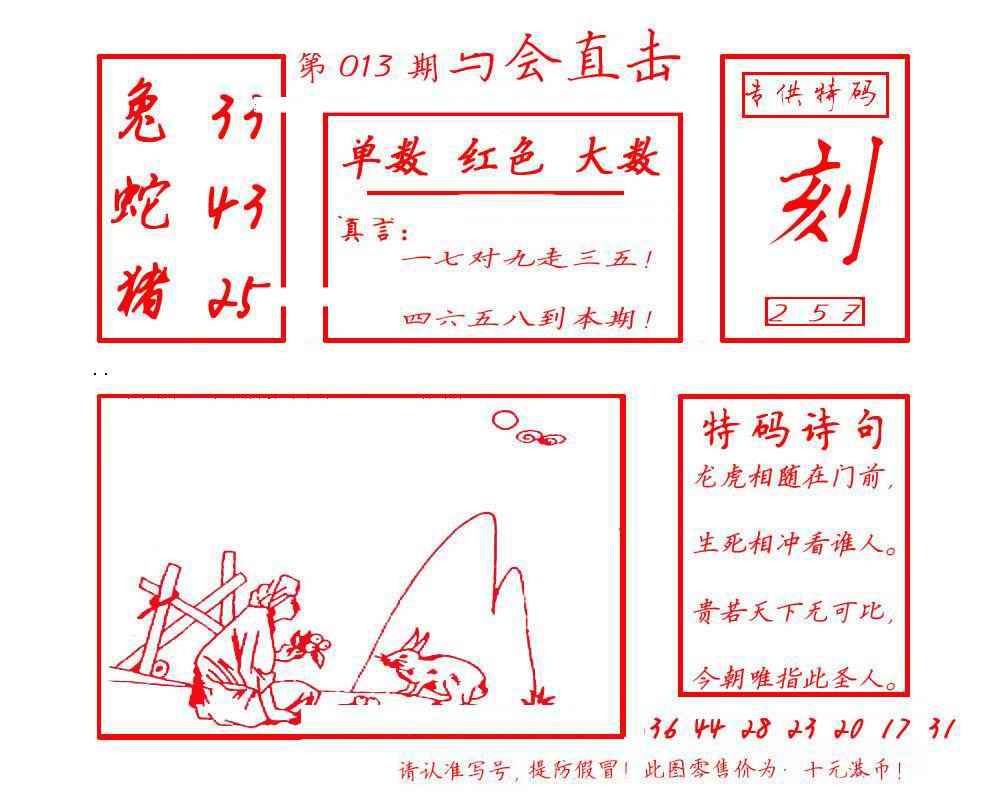 第 013 期 与会直击
兔 33
蛇 43
猪 25
单数 红色 大数
真言：
一七对九走三五！
四六五八到本期！
专供特码
刻
2 5 7
特码诗句
龙虎相随在门前，
生死相冲看谁人。
贵若天下无可比，
今朝唯指此圣人。
36 44 28 23 20 17 31
请认准写号，提防假冒！此图零售价为·十元港币！